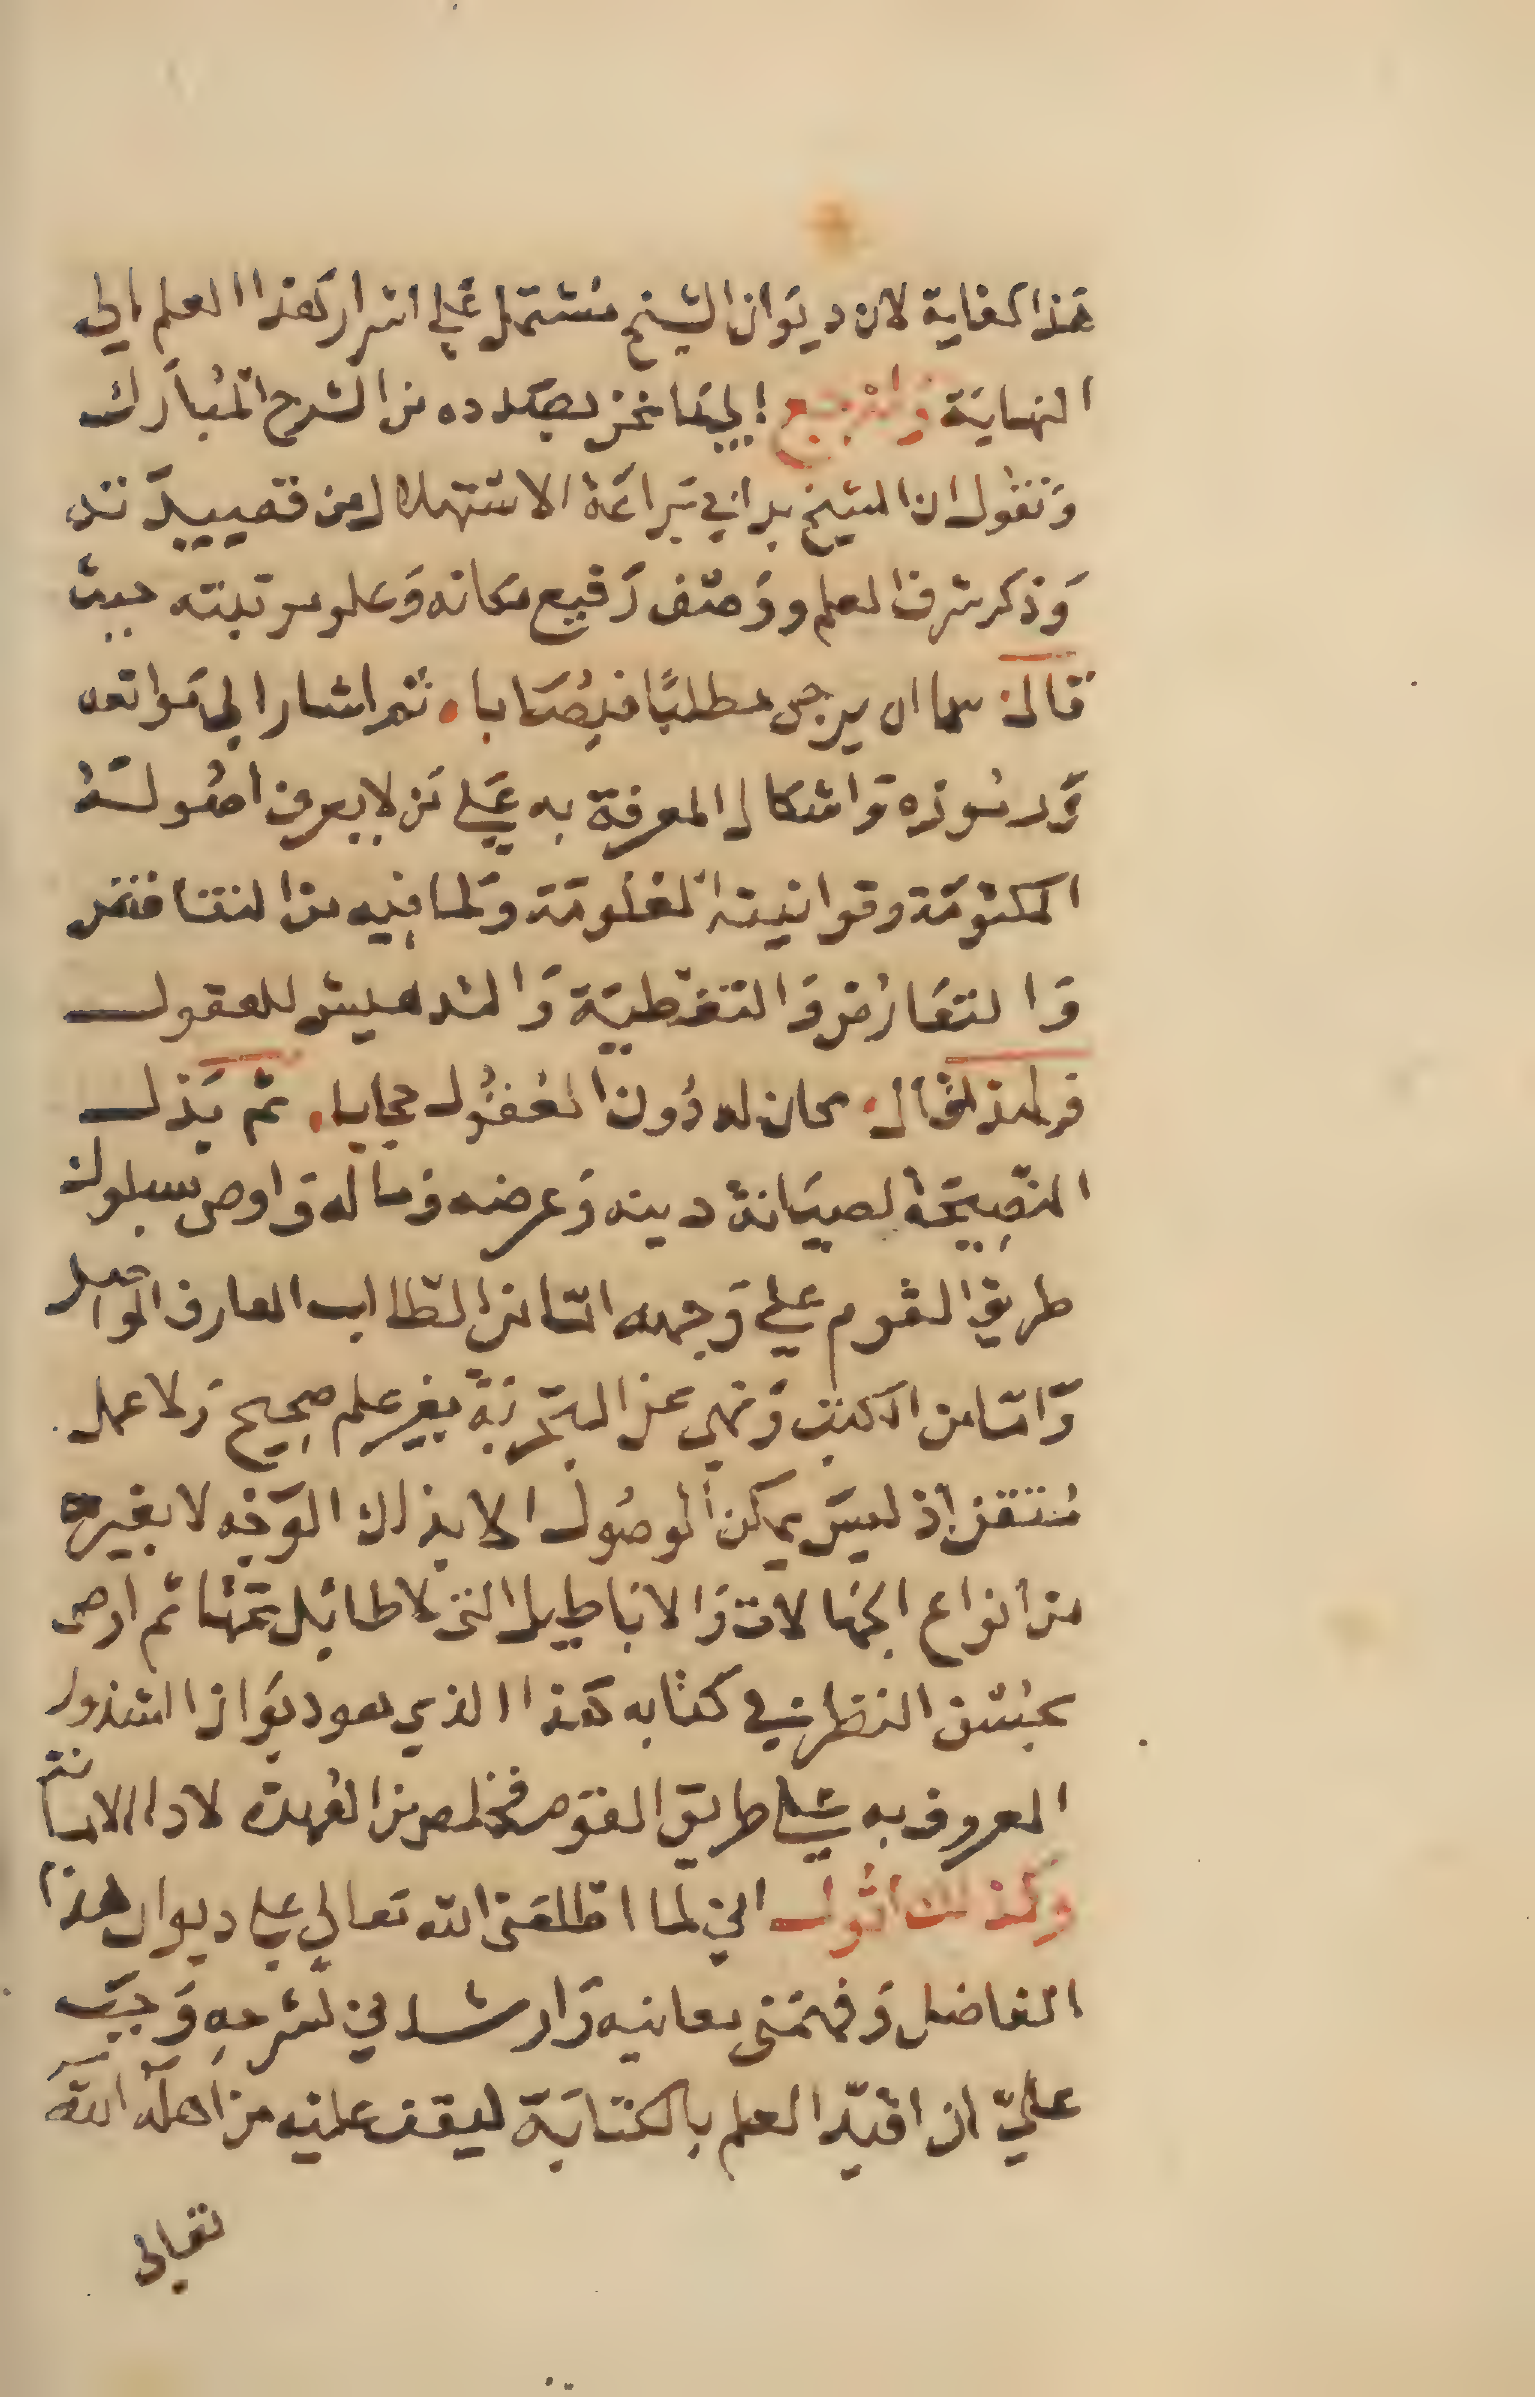 هَذا كفاية لان ديوَان الشيخ مُشتمل عَلي اسرار هَذا العلم الي
النهايَة ولنرجع الي مَا نحن بصَدده من الشرح المُبَارك
وَنقول ان الشيخ بدا في بَراعَة الاستهلال من قصيدَته
وَذكر شرف العلم ووَصف رَفيع مكانه وَعلو مرتبته حيث
قال سما ان يرجي مطلبًا فيُصَابا ثم اشار الي مَوانعه
وَرمُوزه وَاشكال المعرفة به عَلي مَن لا يعرف اصُولَه
المكتومَة وقوانينه المعلومَة وَلما فيه من التناقض
وَالتعَارض وَالتغطيَة وَالتدهيش للعقول
فلهذا قال كان له دُون العُقول حجابا ثم بَذل
النّصِيحَة لصيَانة دينه وَعرضه وَماله وَاوصي بسلوك
طريق القوم علي وَجهه امّا من الطّالب العارف الواصل
وَّامّا من الكتب وَنهي عن التّجربَة بغير علم صحِيح وَلا عمل
مُتقن اذ ليسَ يمكن الوصُول الا بذلك الوَجه لا بغيره
من انواع الجهَالات وَالابَاطيل التي لا طائل تحَتها ثم اوصي
بحُسن النظر في كتابه هَذا الذي هو ديوَان الشذور
المعروف به علي طريق القوم فخلص من العُهدة لادا الامانة
وَكذلك اقُول اني لما اطّلعَني الله تعَالي علي ديوان هذا
الفاضل وَفهمَني معانيه وَارشدني لشرحِهِ وَجَبَ
عليّ ان اقيّد العلم بالكتابَة ليقف عليه من اهله اللهَ
تعالى